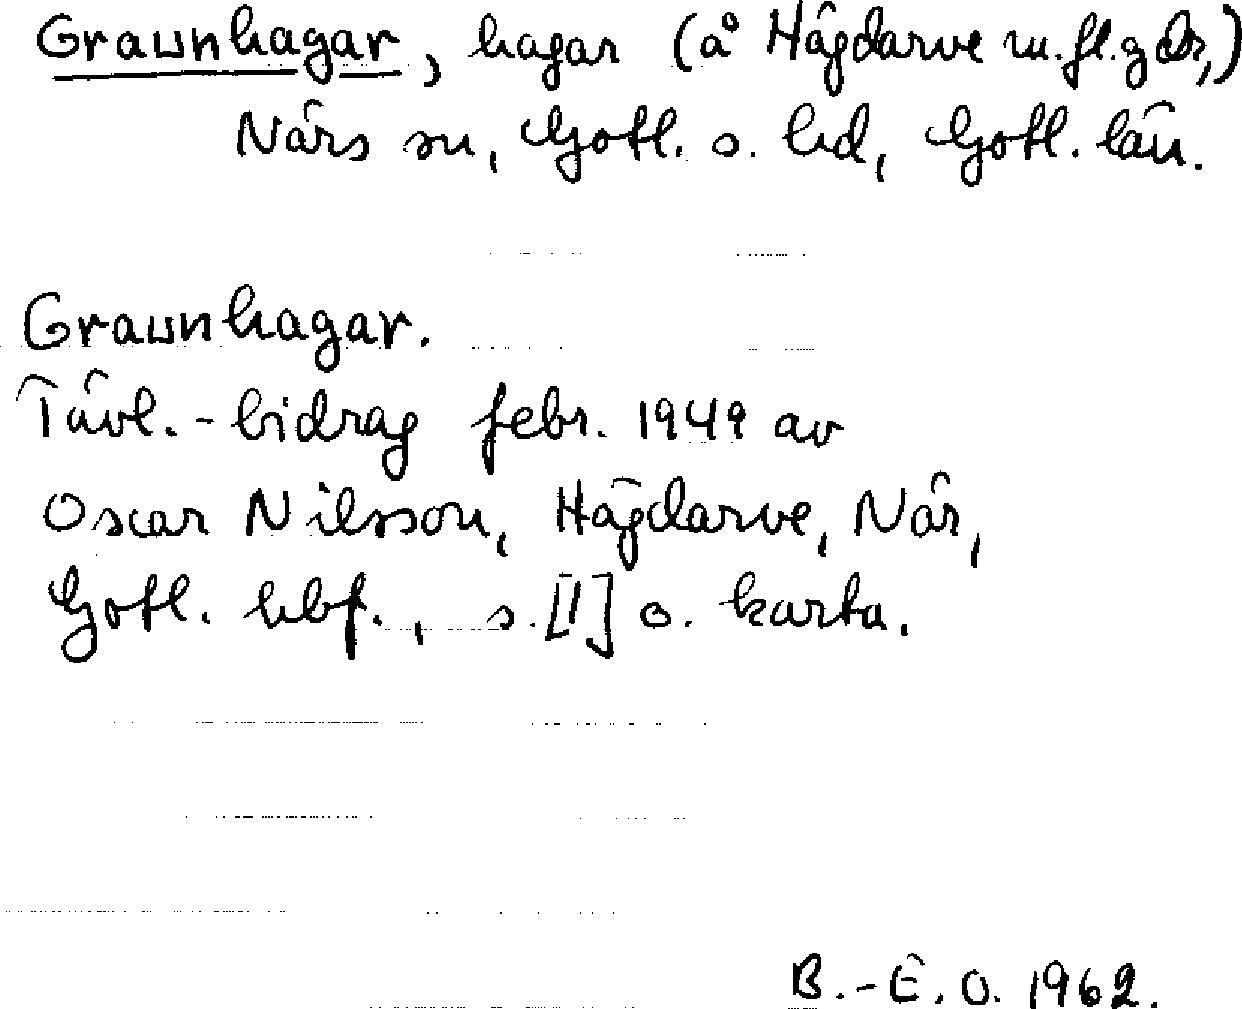 Graunhagar, hagar (å Hägdarve m.fl. gdr,)
Närs sn, Gotl. s. hd, Gotl. län.
Graunhagar.
Tävl.-bidrag febr. 1949 av
Oscar Nilsson, Hägdarve, När,
Gotl. hbf., s. [1] o. karta.
B.-E. O. 1962.